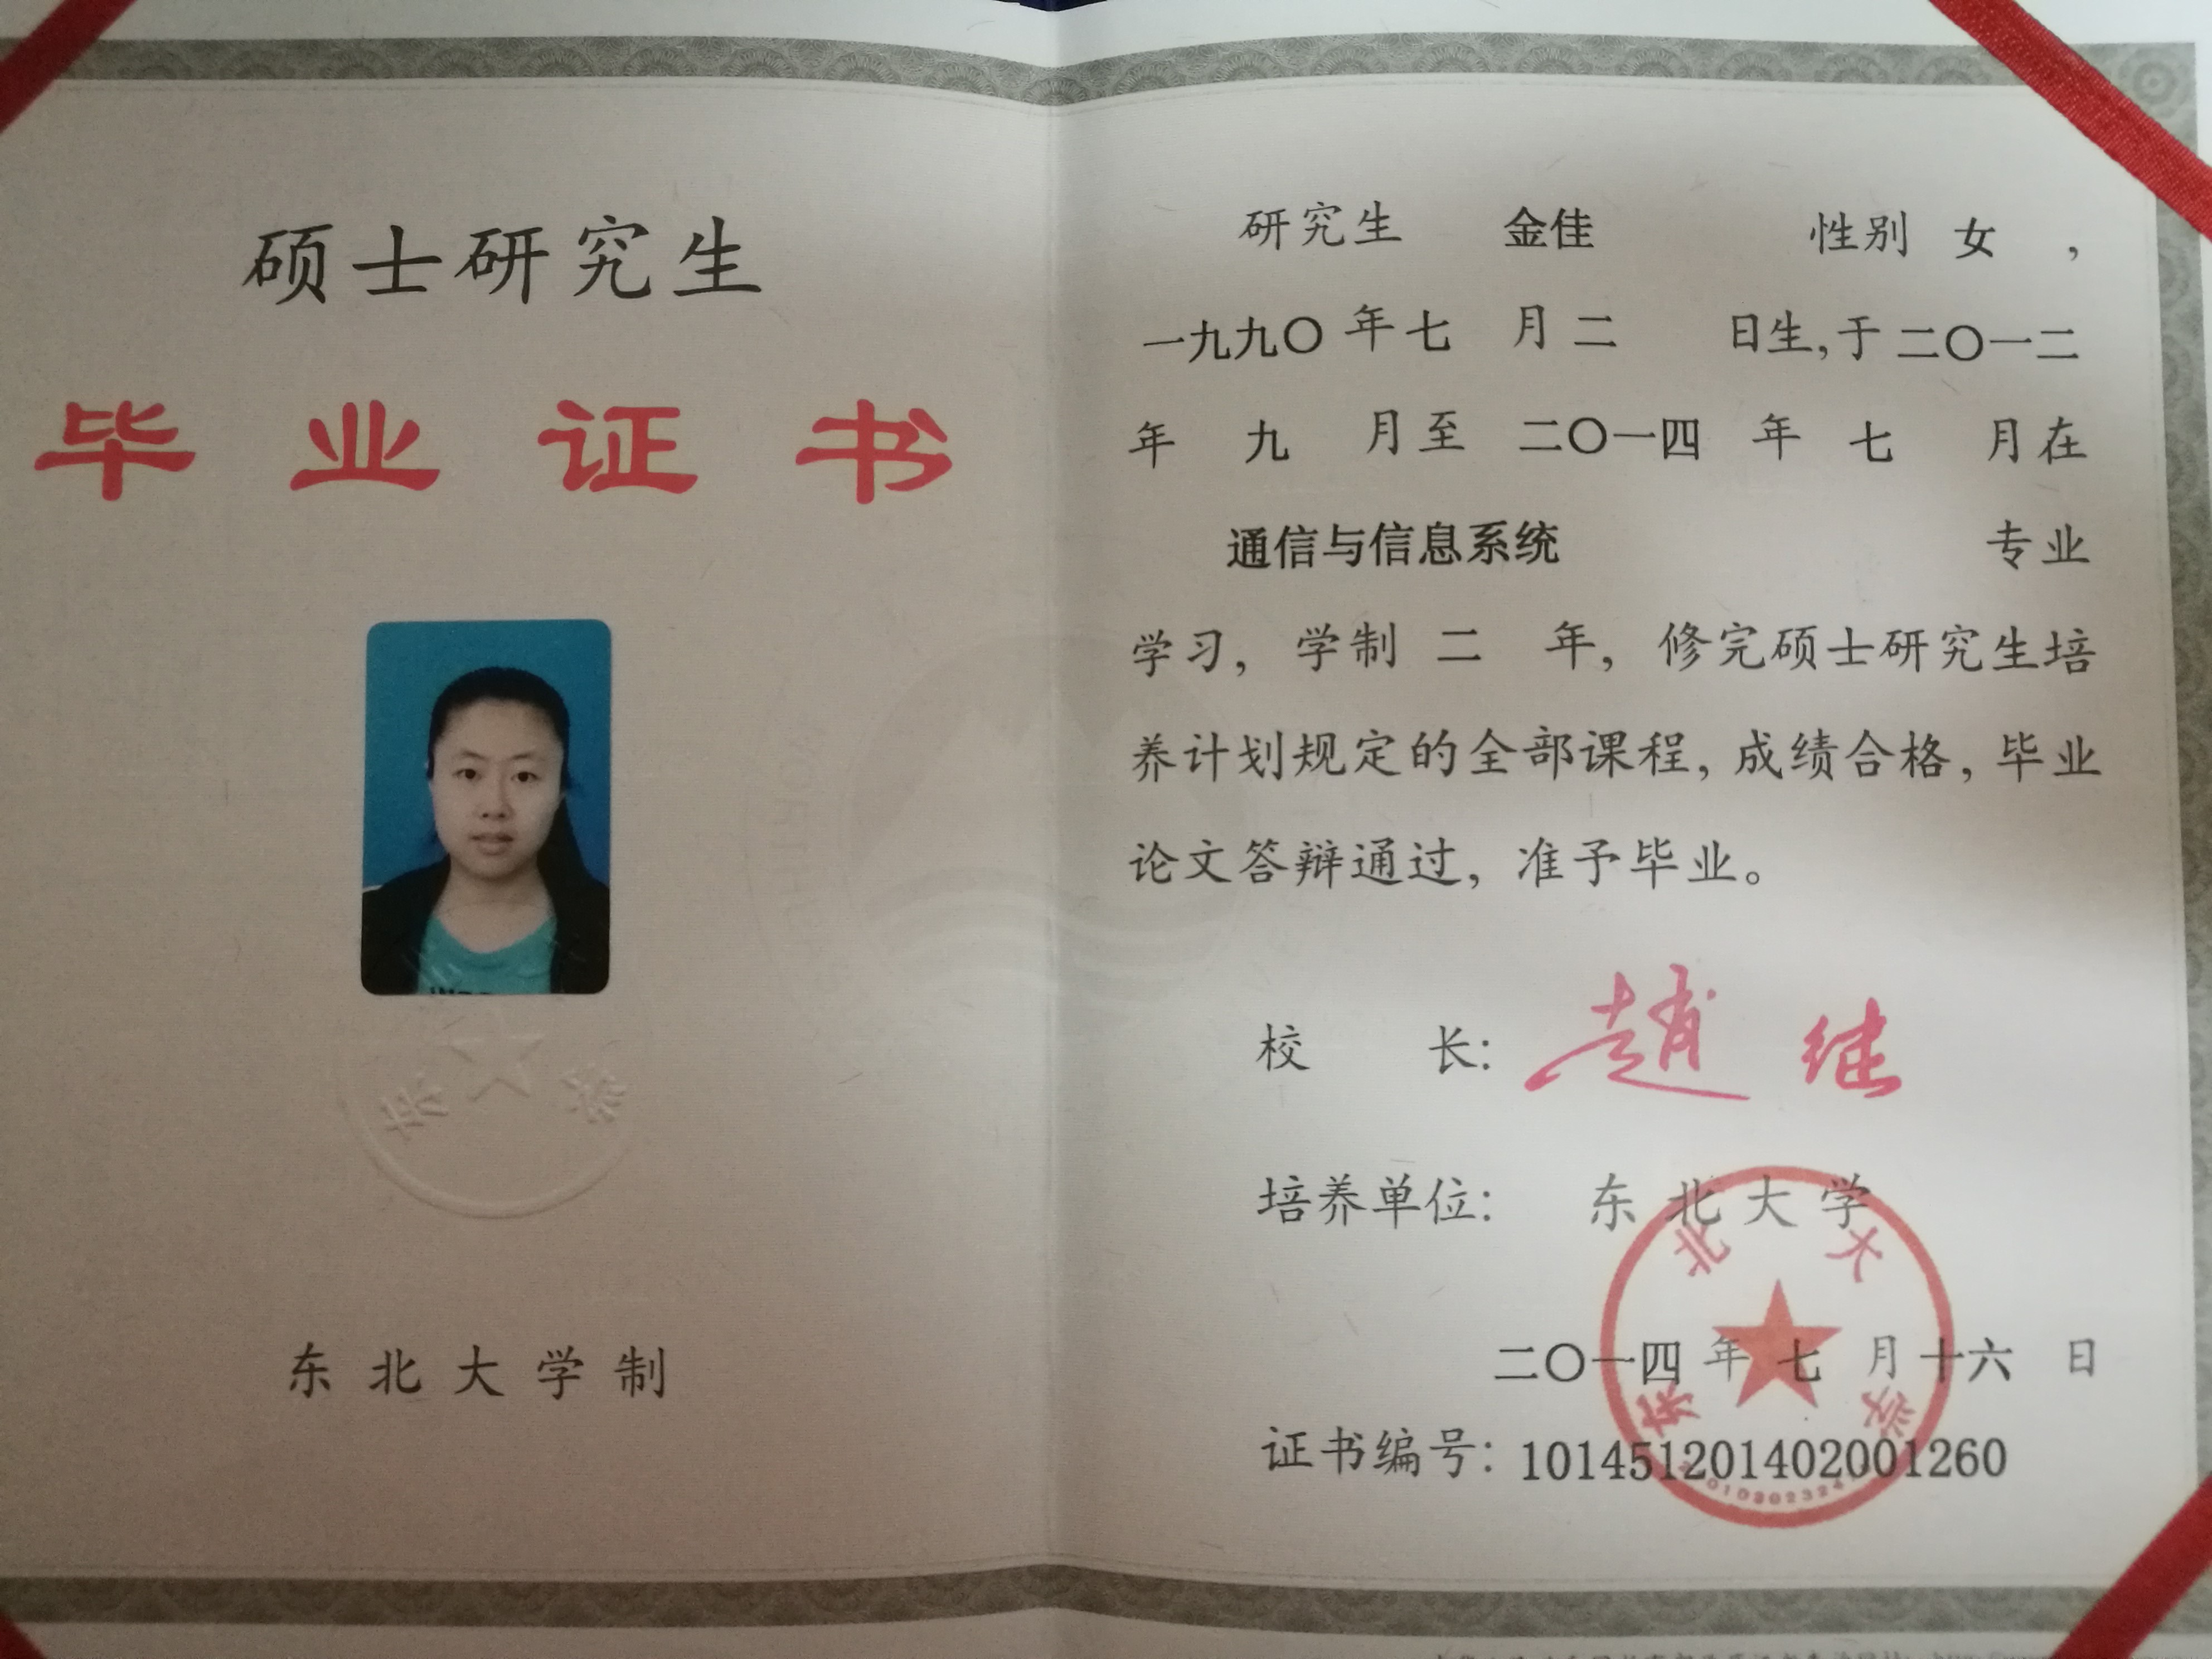 硕士研究生
毕业证书
东北大学
东北大学制
研究生 金佳 性别 女 ,
一九九〇 年 七 月 二 日生,于 二〇一二
年 九 月至 二〇一四 年 七 月在
通信与信息系统 专业
学习, 学制 二 年, 修完硕士研究生培
养计划规定的全部课程, 成绩合格, 毕业
论文答辩通过, 准予毕业。
校 长: 赵继
培养单位: 东北大学
东北大学
二〇一四 年 七 月 十六 日
证书编号: 101451201402001260